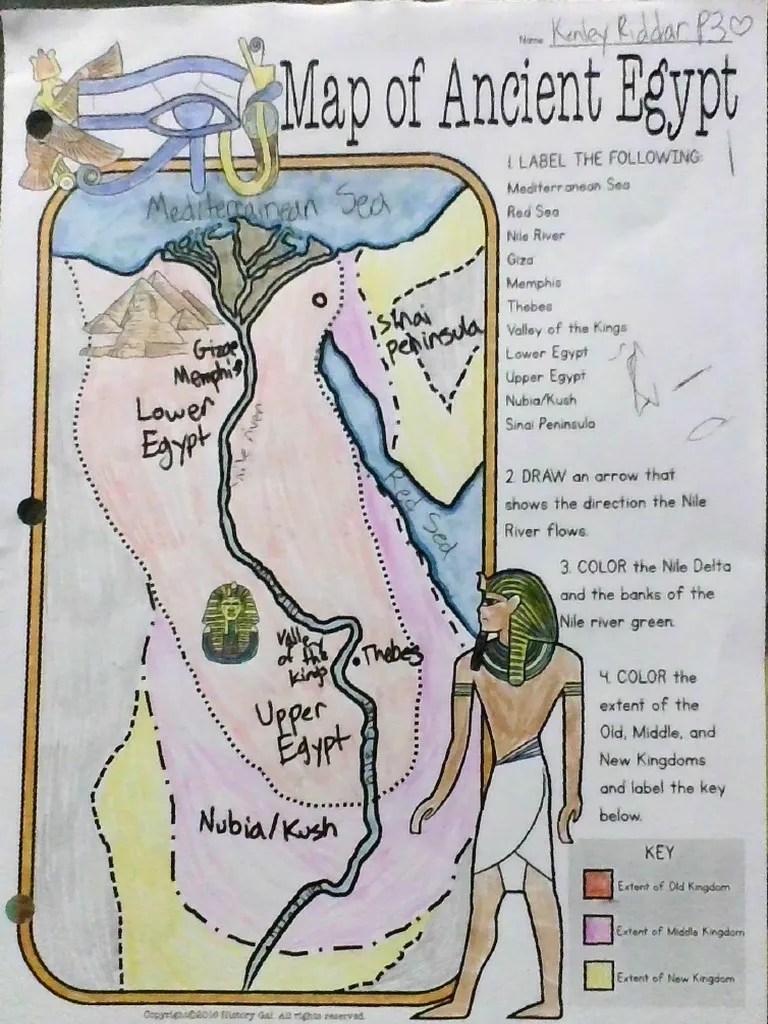 Name Kenley Riddar P3♡
Map of Ancient Egypt
1. LABEL THE FOLLOWING:
Mediterranean Sea
Red Sea
Nile River
Giza
Memphis
Thebes
Valley of the Kings
Lower Egypt
Upper Egypt
Nubia/Kush
Sinai Peninsula
2. DRAW an arrow that
shows the direction the Nile
River flows.
3. COLOR the Nile Delta
and the banks of the
Nile river green.
4. COLOR the
extent of the
Old, Middle, and
New Kingdoms
and label the key
below.
KEY
Extent of Old Kingdom
Extent of Middle Kingdom
Extent of New Kingdom
Mediterrainean Sea
Sinai
Peninsula
Gizae
Memphis
Lower
Egypt
Nile river
Red Sea
Valley
of the
Kings
Thebes
Upper
Egypt
Nubia/Kush
Copyright©2016 History Gal. All rights reserved.